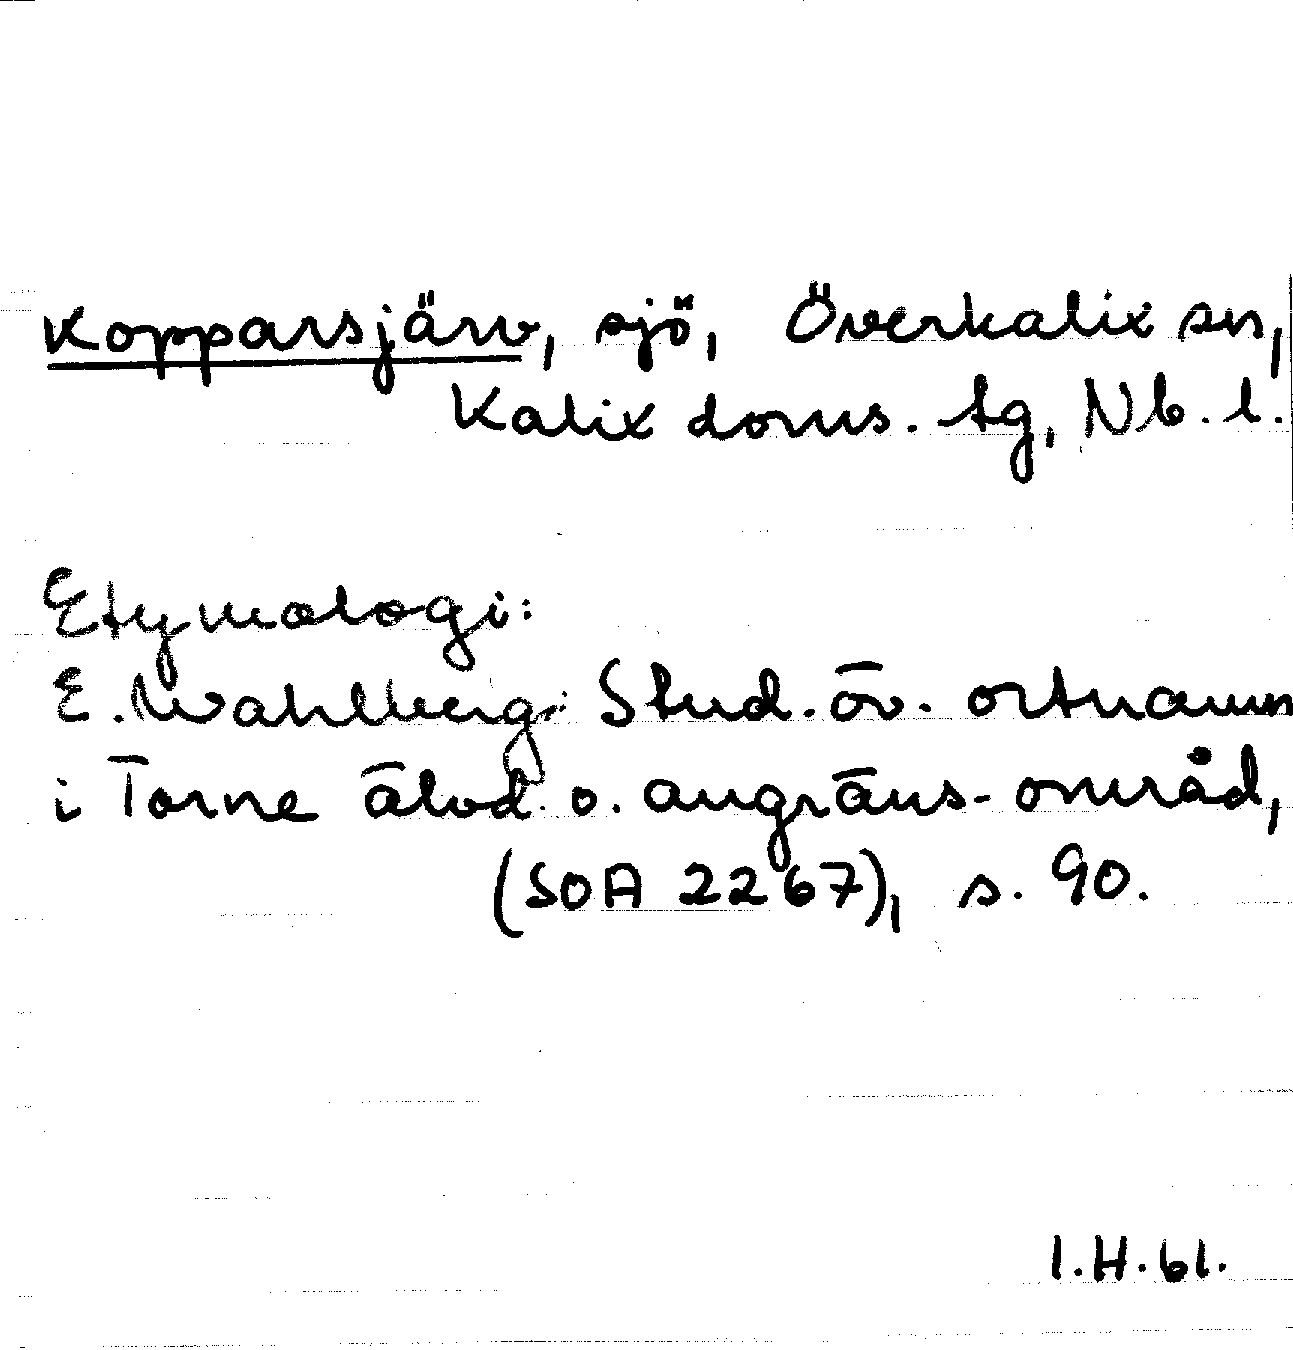 Kopparsjärv, sjö, Överkalix sn,
Kalix doms. tg, Nb. l.
Etymologi:
E. Wahlberg: Stud. öv. ortnamn
i Torne älvd. o. angräns. områd,
(SOA 2267), s. 90.
I.H. 61.